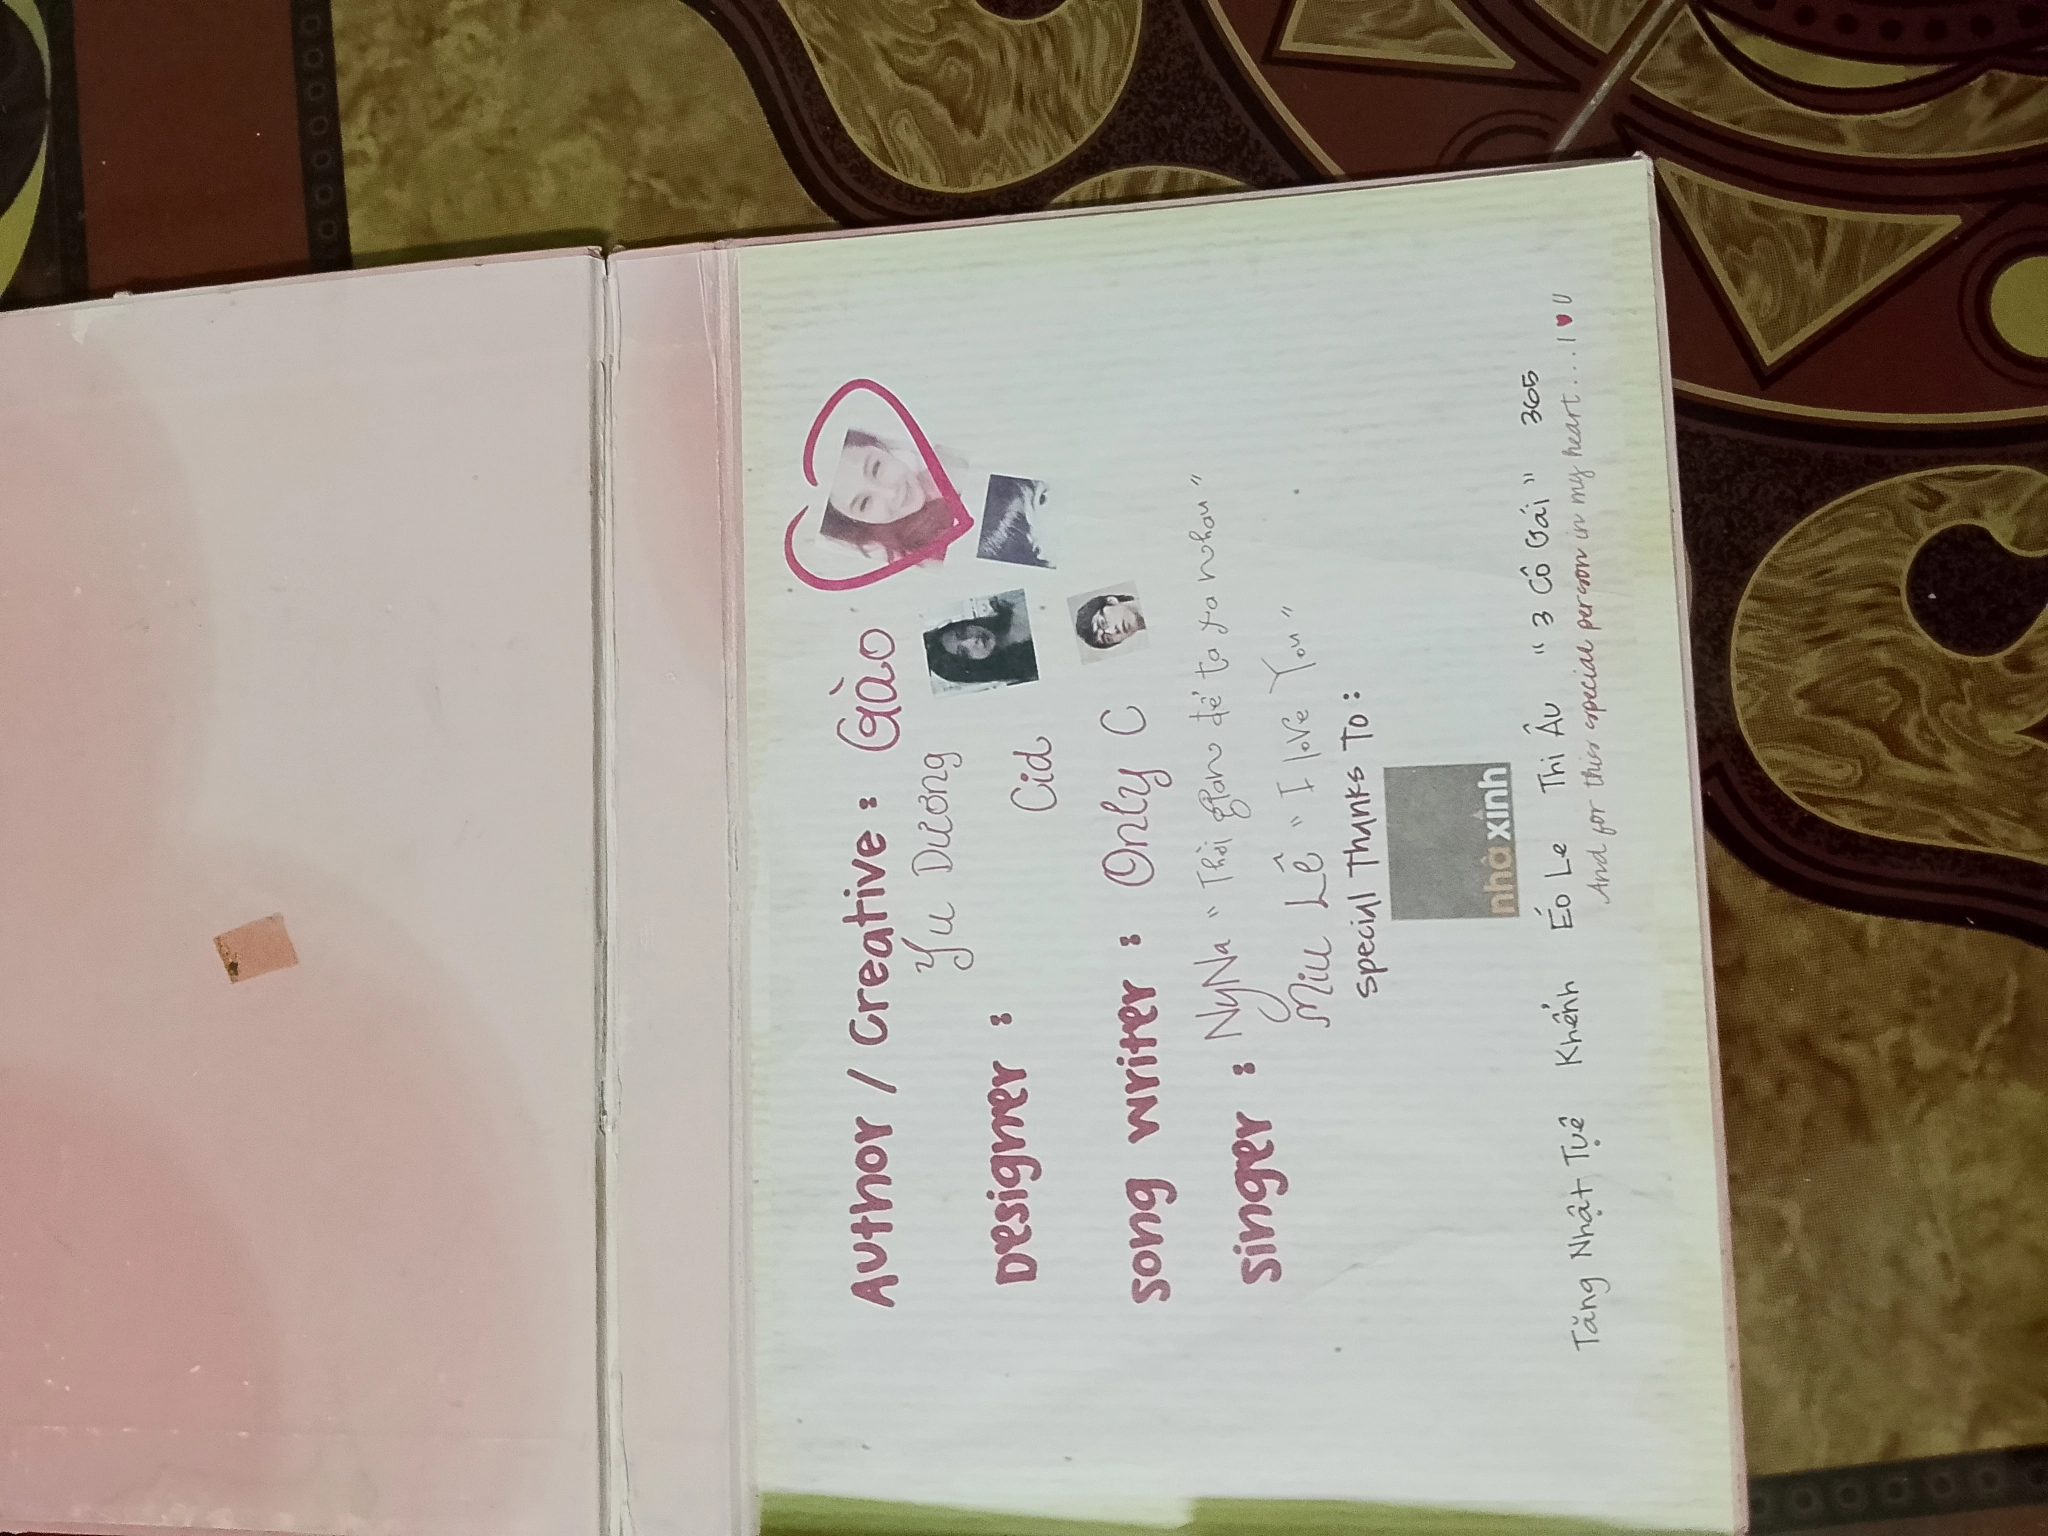 Author / Creative : Gào
Yu Dương
Designer :
Cid
Song writer : Only C
Singer : NyNa " Thời gian để ta xa nhau "
Miu Lê " I love You "
Special Thanks To :
nhà xinh
Tăng Nhật Tuệ Khánh Éo Le Thi Âu " 3 Cô Gái " 365
And for this special person in my heart... I ♥ U